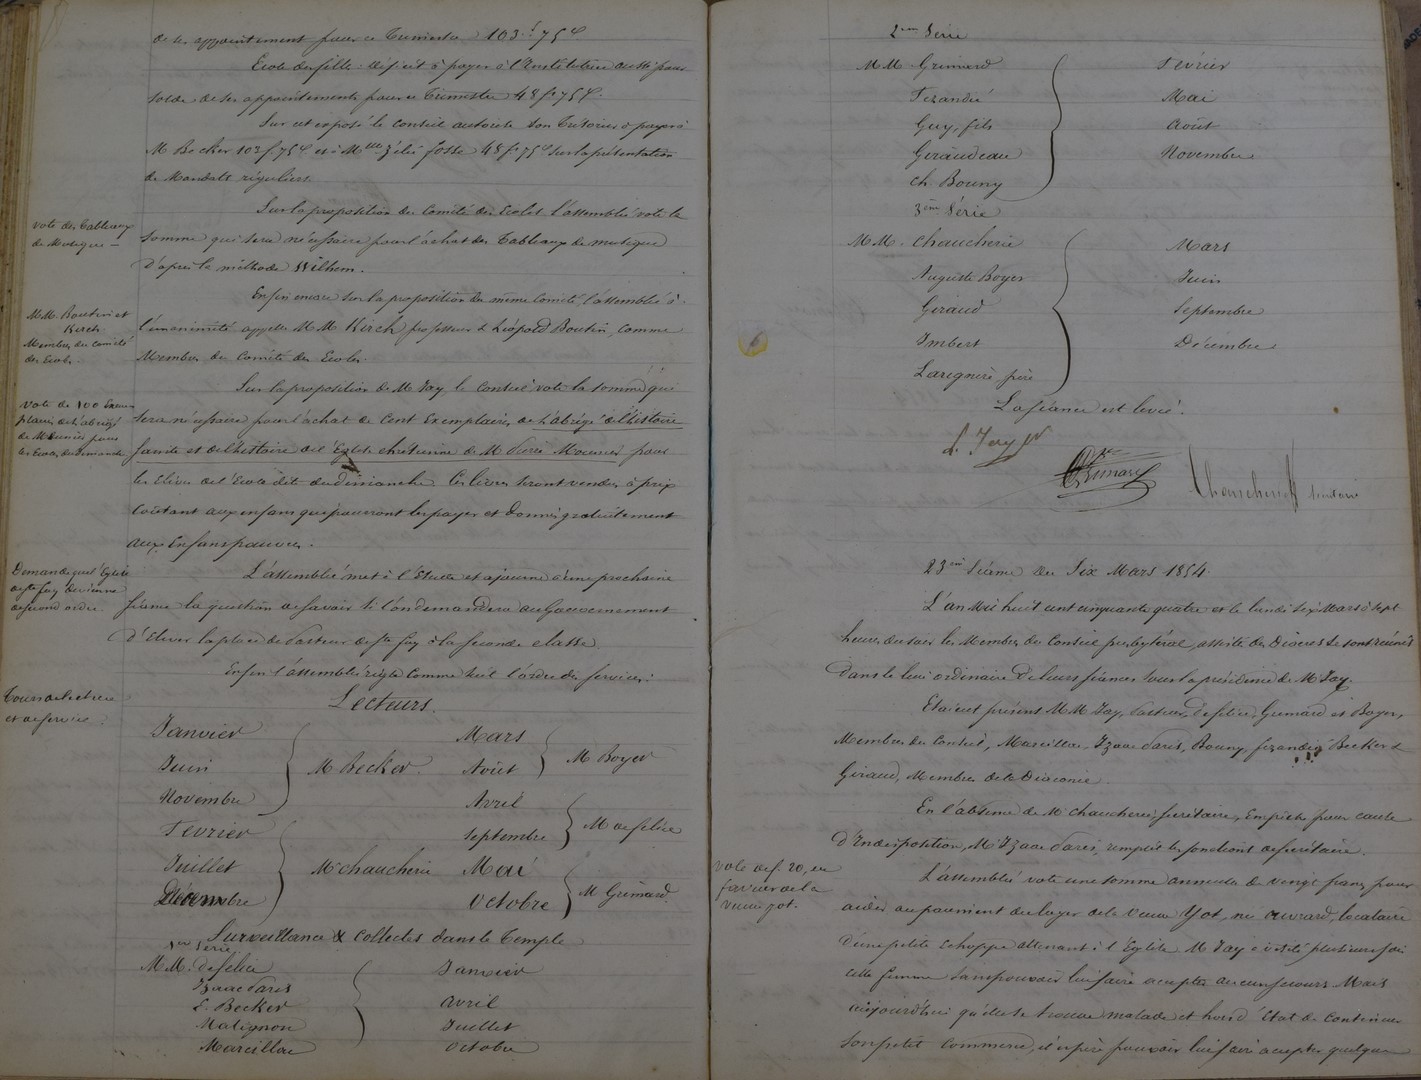 de ses appointement pour ce Trimestre 103 f 75 c
Ecole des filles. Deficit à payer à l'Institutrice aussi pour
solde de ses appointements pour ce Trimestre 48 f. 75 c.
Sur cet exposé le Conseil autorise son Trésorier à payer à
M Becker 103 f 75 c et à Melle Zélie fosse 48 f. 75 c sur la présentation
de Mandats réguliers
vote des tableaux
de Musique —
Sur la proposition du Comité des Ecoles l'assemblée vote la
somme qui sera nécessaire pour l'achat des Tableaux de musique
D'après la méthode Wilhem.
MM. Boutin et
Kirch
Membres du comité
des Ecoles.
Enfin encore sur la proposition du même Comité, l'assemblée à
l'unanimité appelle MM Kirch professeur & Léopold Boutin, comme
Membres du Comité des Ecoles.
vote de 100 Exem
plaires de l'abrégé
de Mounier pour
les Ecoles du dimanche
Sur la proposition de M Jay le Conseil vote la somme qui
sera nécessaire pour l'achat de Cent Exemplaires de l'abrégé de l'histoire
sainte et de l'histoire de l'Eglise chrétienne de M Mounier pour
les Elèves de l'Ecole dite du dimanche. Ces livres seront vendus à prix
Coûtant aux enfans qui pourront les payer et Donnés gratuitement
aux Enfans pauvres.
Demande que l'Eglise
de Ste foy devienne
de second ordre.
L'assemblée met à l'Etude et ajourne à une prochaine
séance la question de savoir si l'on demandera au Gouvernement
d'Elever la place de Pasteur de Ste foy à la seconde classe
Enfin l'assemblée règle Comme suit l'ordre des services:
Tours de lecture
et de service.
Lecteurs.
Janvier
Juin
Novembre
M Becker
Mars
Août
M Boyer
Fevrier
Juillet
Décembre
M chaucherie
Avril
Septembre
M defélice
Mai
Octobre
M Grimard
Surveillance & Collectes dans le Temple
1ere Série
MM. defélice
Izaac Paris
E. Becker
Matignon
Marcillou
Janvier
Avril
Juillet
Octobre
2eme Série
MM Grimard
Ferandié
Guy, fils
Geraudeau
Ch. Bouny
Février
Mai
Août
Novembre
3eme Série
MM. Chaucherie
Auguste Boyer
Giraud
Imbert
Laregnère père
Mars
Juin
Septembre
Décembre
La séance est levée.
L. Jay
Grimard
Chaucherie
23eme Séance du Six Mars 1854
L'an Mil huit cent cinquante quatre et le lundi six Mars à sept
heures du soir les Membres du Conseil presbytéral, assisté des Diacres se sont réunis
dans le lieu ordinaire de leurs séances sous la présidence de M Jay.
Etaient présents MM Jay, Pasteur, Defélice, Grimard et Boyer,
Membres du Conseil, Marcillou, Izaac Paris, Bouny, ferandié Becker &
Giraud, Membres de la Diaconie.
En l'absence de M chaucherie, secrétaire, Empêché pour cause
d'Indisposition, M Izaac Paris, remplit les fonctions de secrétaire.
vote de f. 20, en
faveur de la
veuve yot.
L'assemblée vote une somme annuelle de vingt francs pour
aider au paiement du loyer de la veuve Yot, née Ouvrard, locataire
d'une petite Echoppe attenant à l'Eglise. M Jay a visité plusieurs fois
cette femme sans pouvoir lui faire accepter aucun secours. Mais
aujourd'hui qu'elle se trouve malade et hors d'Etat de Continuer
son petit Commerce, il espère pouvoir lui faire accepter quelque